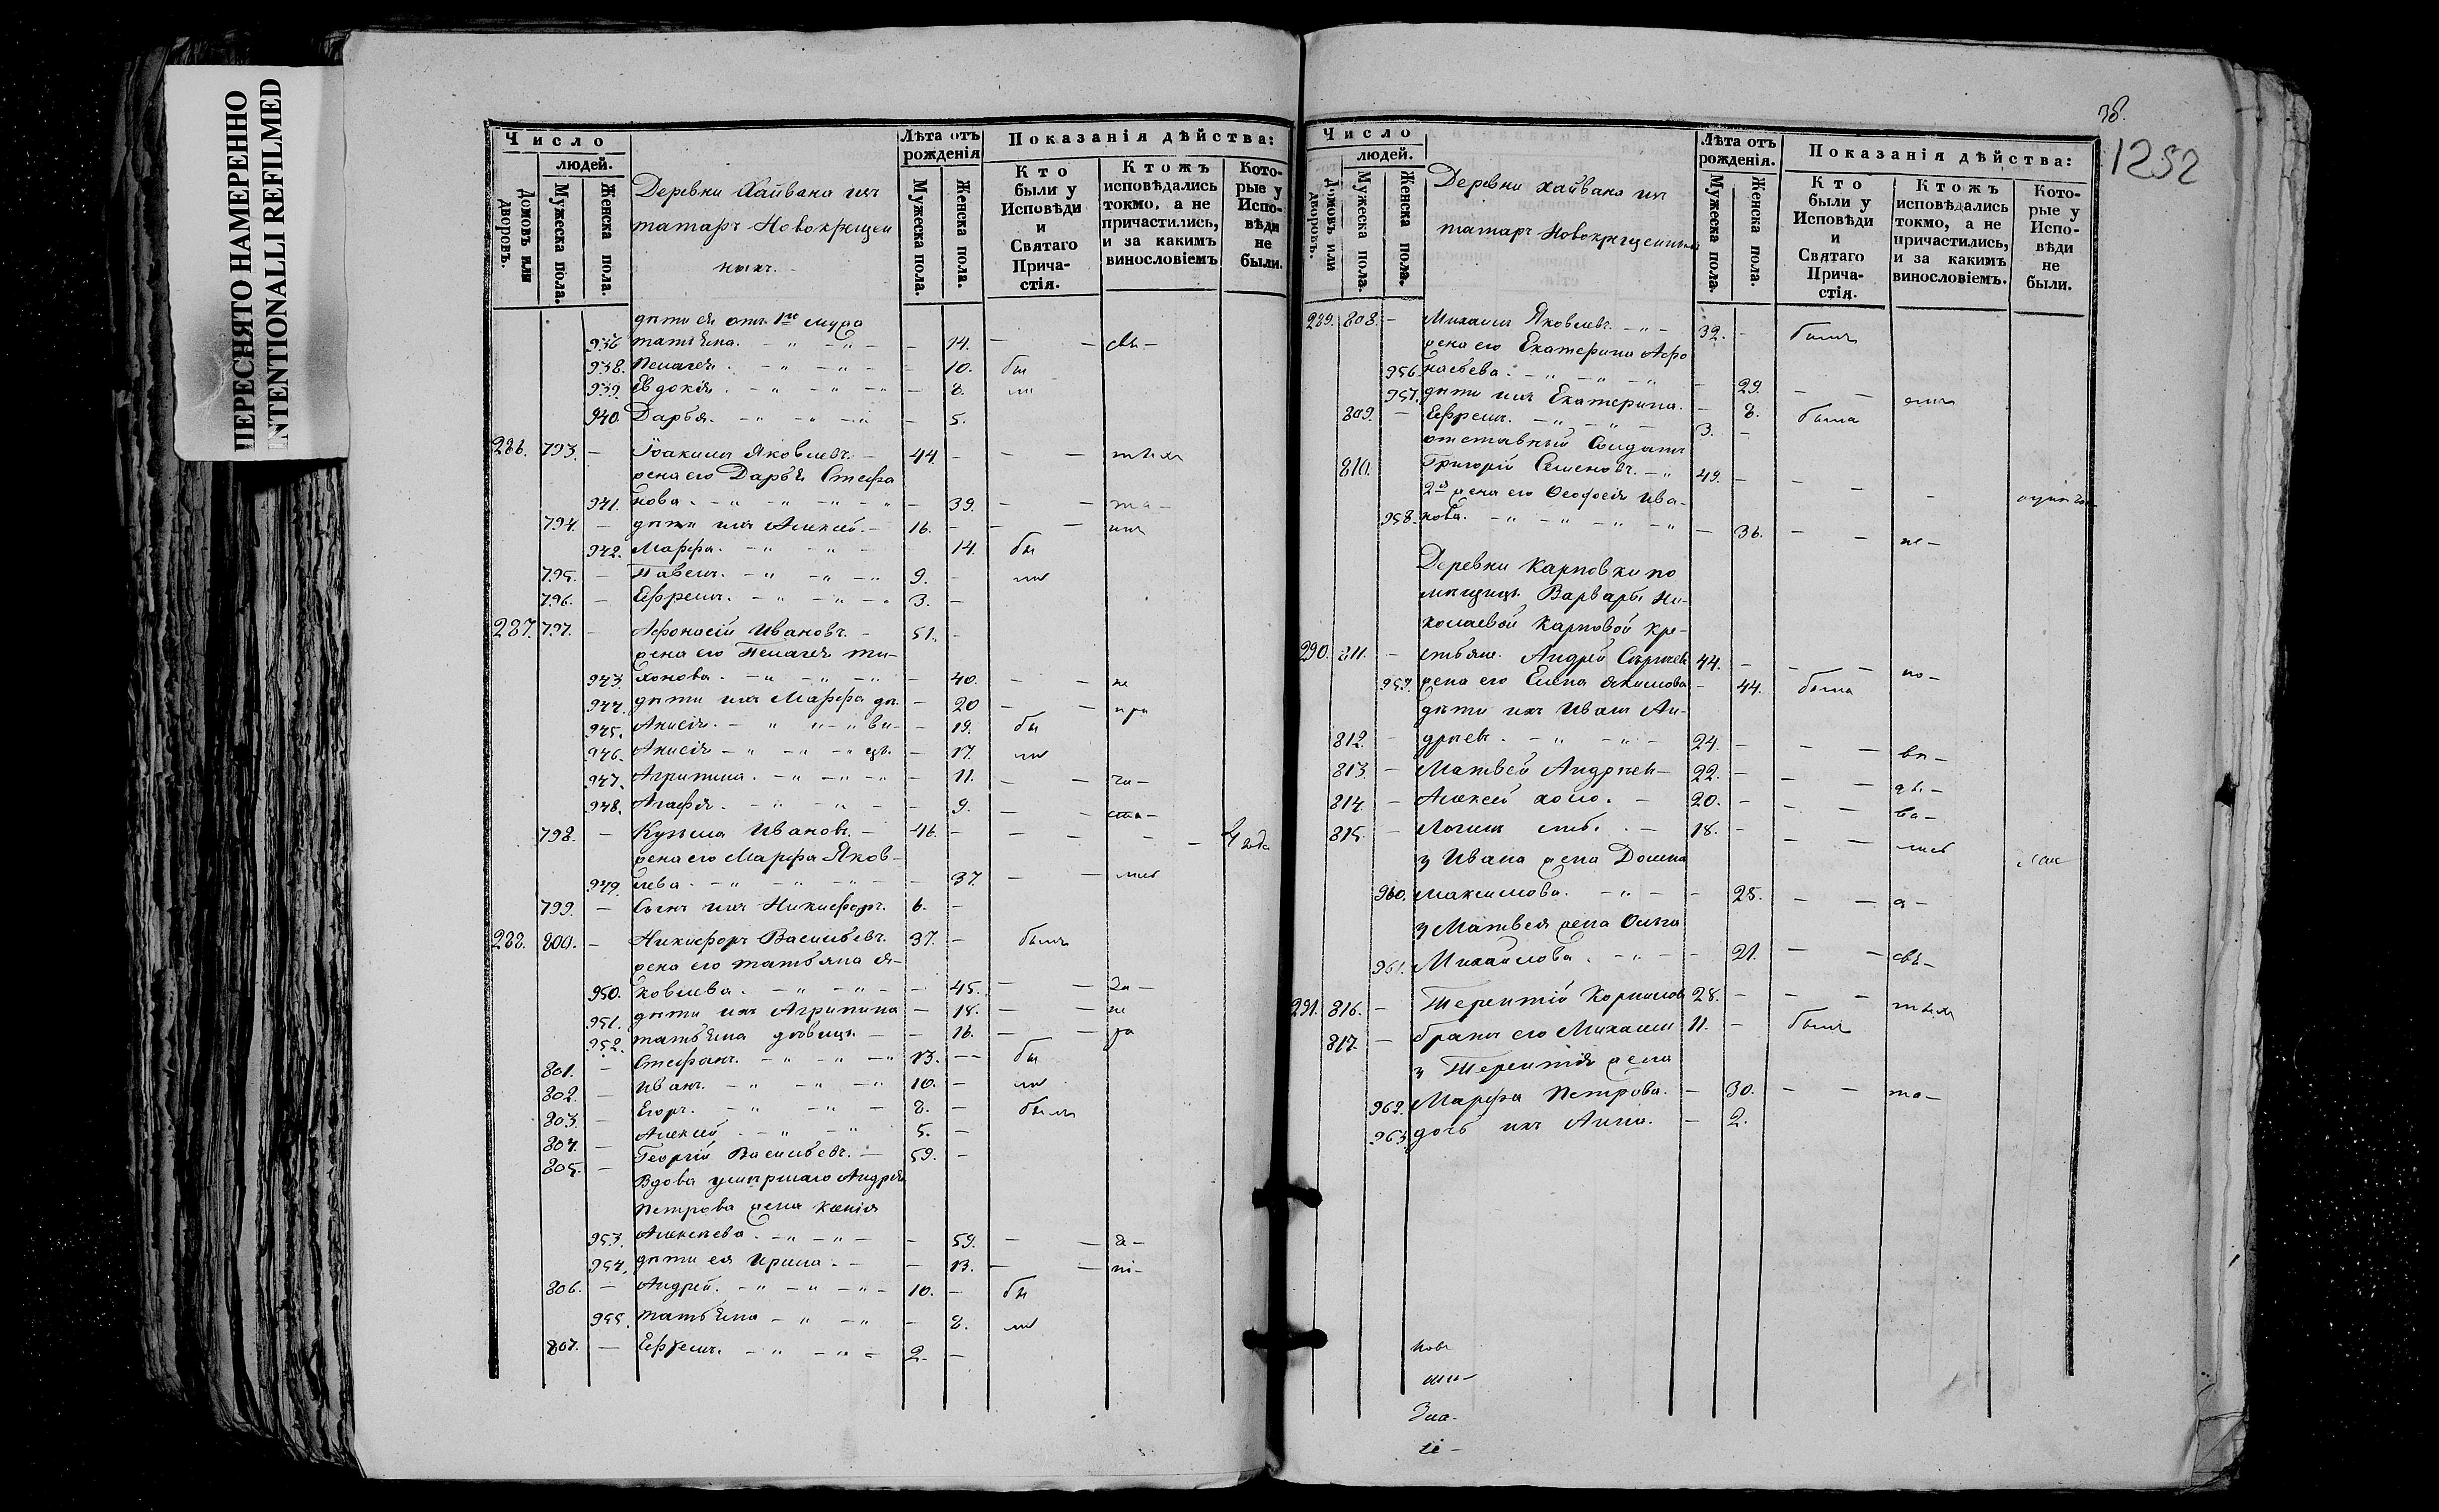 ПЕРЕСНЯТО НАМЕРЕННО
INTENTIONALLI REFILMED
Число
людей.
Домовъ или дворовъ.
Мужеска пола.
Женска пола.
Деревни Хайвана изъ
татаръ Новокрещен
ныхъ.
Лѣта отъ рожденія
Мужеска пола.
Женска пола.
Показанія дѣйства:
Кто были у Исповѣди и Святаго Прича-стія.
Ктожъ исповѣдались токмо, а не причастились, и за какимъ винословіемъ
Кото-рые у Испо-вѣди не были.
дѣти ея отъ 1го мужа
936 татьяна. — 14. —
938. Пелагея. — 10. бы
939. Евдокія. — 8. ли
940. Дарья. — 5.
286. 793. — Іоакимъ Яковлевъ. — 44. — тѣхъ
жена его Дарья Стефа
941. нова — 39. — та —
794. — дѣти ихъ Алексей. — 16. —
942. Марфа. — 14. бы
795. — Павелъ. — 9. — ли
796. — Ефремъ. — 3. —
287. 797. — Афонасій Ивановъ. — 51. —
жена его Пелагея ти-
943. хонова. — 40. — не
944. дѣти ихъ Марфа дѣ. — 20 — при
945. Анисія. — ви — 19. бы
946. Анисія — цы. — 17. ли
947. Агрипина. — 11. — ча —
948. Агафья. — 9. — сти —
798. — Кузьма Ивановъ. — 46. — 4 года
жена его Марфа Яков-
949. лева. — 37. — лись
799. — Сынъ ихъ Никифоръ. 6. —
288. 800. — Никифоръ Васильевъ. 37. — былъ
жена его татьяна я-
950. ковлева. — 45. — за —
951. дѣти ихъ Агрипина — 18. — не
952. татьяна дѣвицы — 16. —
801. — Стефанъ. — 13. — бы
802. — Иванъ. — 10. — ли
803. — Егоръ. — 8. — былъ
804. — Алексей. — 5. —
805. — Георгій Васильевъ. — 59. —
Вдова умершаго Андрея
Петрова жена Ксенія
953. Алексеева. — 59. —
954. дѣти ея Ирина. — 13. —
806. — Андрей. — 10. — бы
955. татьяна — 8. ли
807. — Ефремъ. — 2. —
1252
Число
людей.
Домовъ или дворовъ.
Мужеска пола.
Женска пола.
Деревни хайвана изъ
татаръ Новокрещенныхъ
Лѣта отъ рожденія.
Мужеска пола.
Женска пола.
Показанія дѣйства:
Кто были у Исповѣди и Святаго Прича-стія.
Ктожъ исповѣдались токмо, а не причастились, и за какимъ винословіемъ.
Кото-рые у Испо-вѣди не были.
289. 808. — Михаилъ Яковлевъ. — 32. — былъ
жена его Екатерина Афо
956. насьева. — 29. —
957. дѣти ихъ Екатерина. — 8. была
809. — Ефремъ. — 3. —
отставный Солдатъ
810. Григорій Семеновъ. — 49. —
2я жена его Феофосія Ива-
958. нова. — 36. — не —
Деревни Карповки по
мѣщицы Варвары Ни-
колаевой Карповой кре-
290. 811. — стьяне. Андрей Сергеевъ 44. — по —
959. жена его Елена Якимова — 44. была
дѣти ихъ Иванъ Ан-
812. — дреевъ. — 24. —
813. — Матвей Андреевъ — 22. —
814. — Алексей холо. — 20. — ва —
815. — Логинъ сты. — 18. — лись
у Ивана жена Домна
960. Максимова. — 28. —
у Матвея жена Олена
961. Михайлова. — 21. — свѣ —
291. 816. — Терентій Корниловъ 28. — тѣхъ
817. — братъ его Михаилъ 11. — былъ
у Терентія жена
962. Марфа Петрова. — 30. — та —
963 дочь ихъ Анна. — 2.